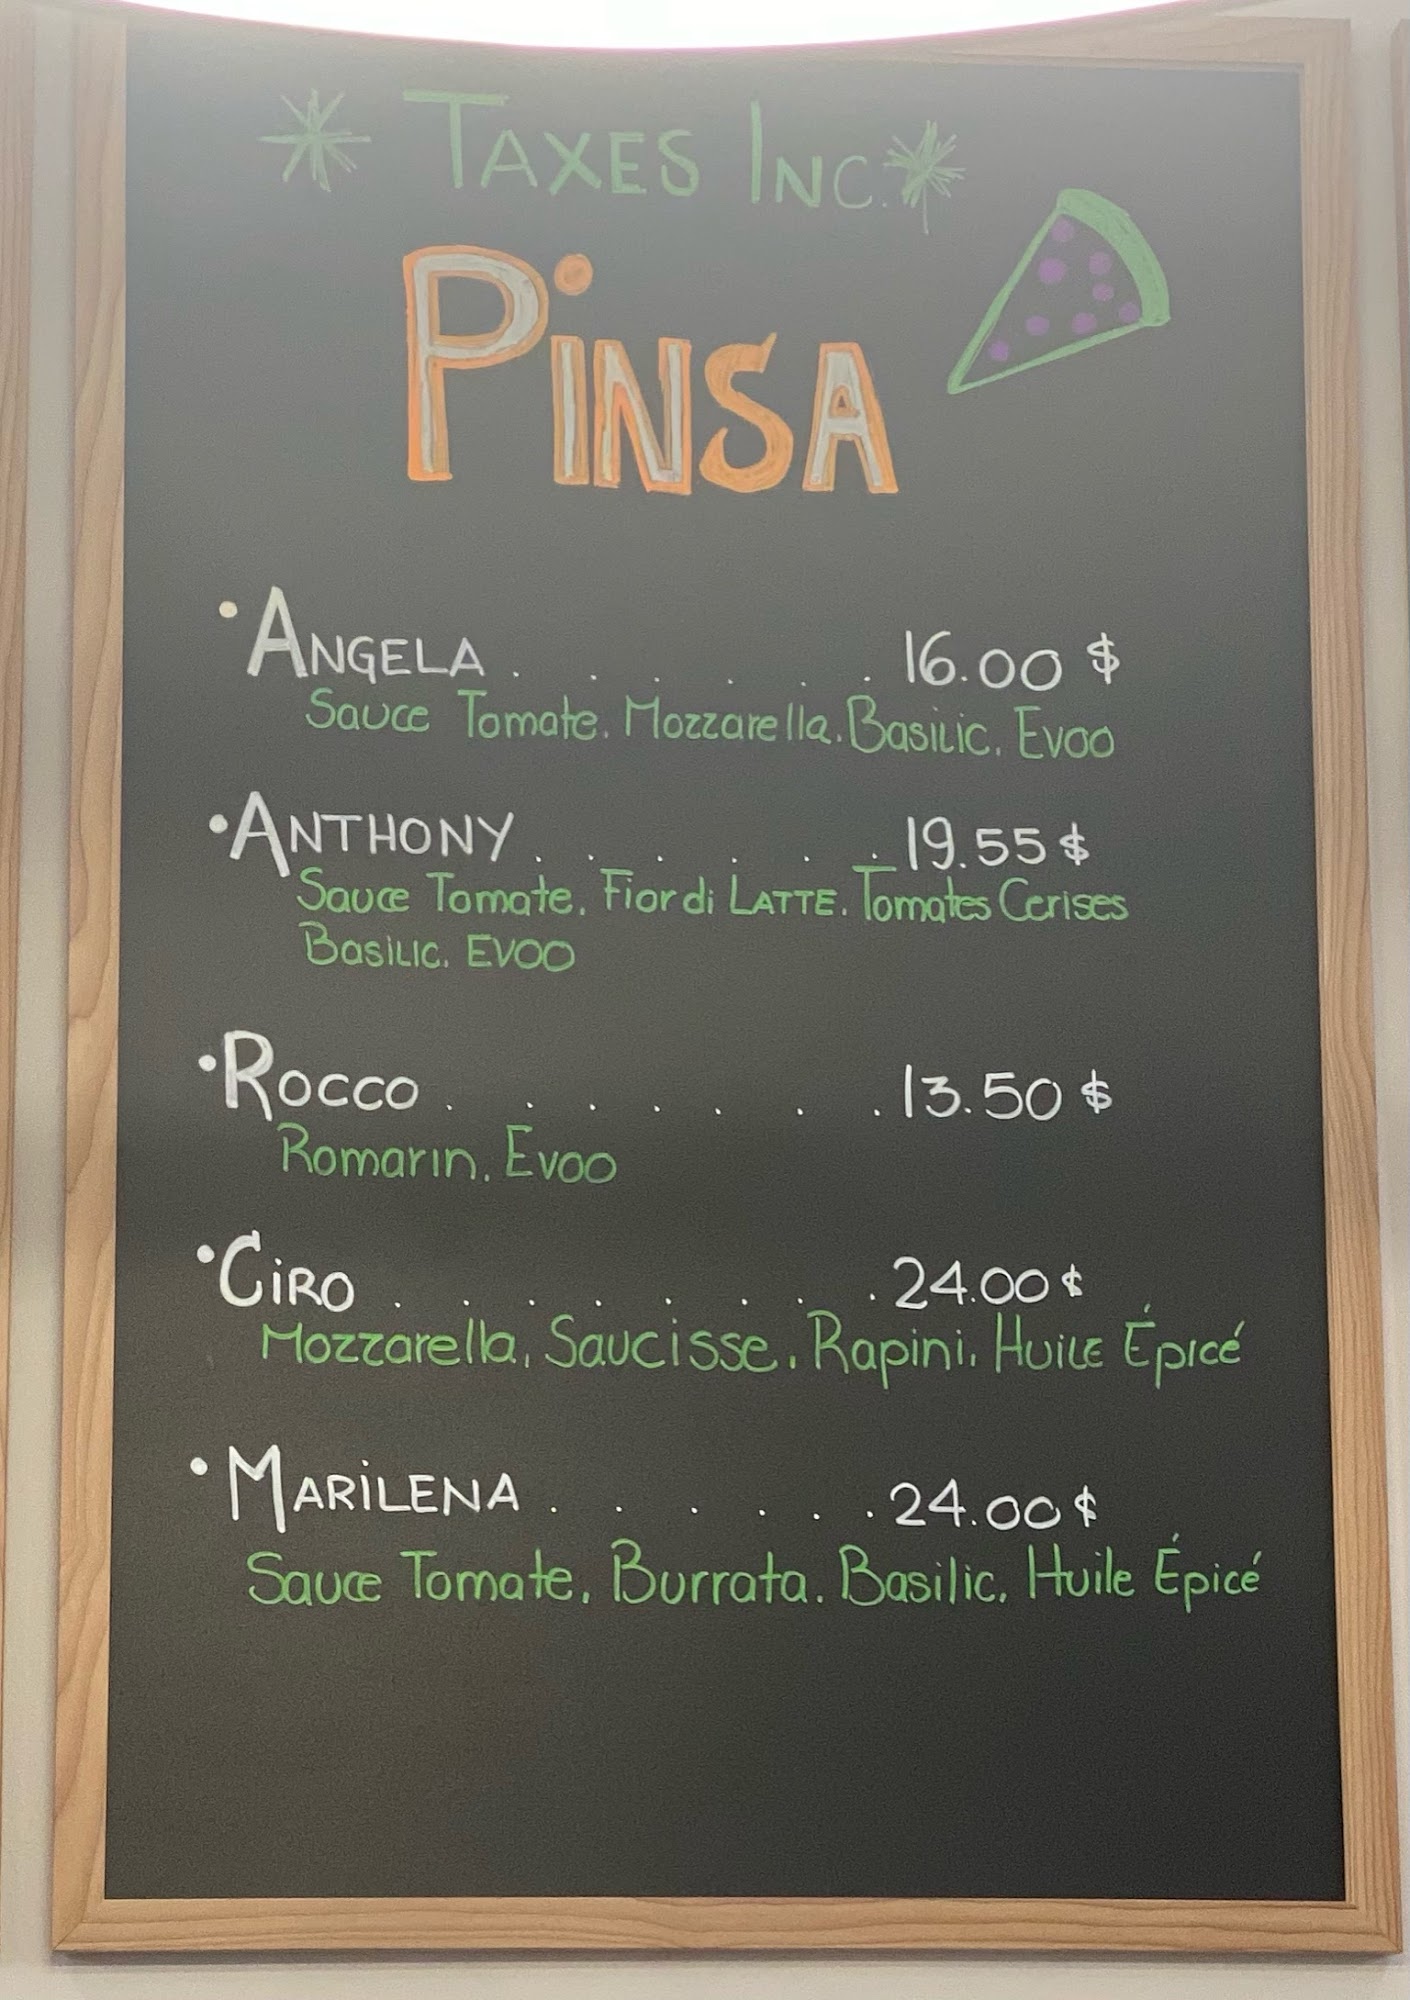 * TAXES INC. *
PiNSA
• ANGELA . . . . . . 16.00 $
Sauce Tomate. Mozzarella. Basilic. Evoo
• ANTHONY . . . . . . 19.55 $
Sauce Tomate. Fior di LATTE. Tomates Cerises
Basilic. EVOO
• ROCCO . . . . . . . 13.50 $
Romarin. Evoo
• CiRO . . . . . . . . 24.00 $
Mozzarella, Saucisse. Rapini. Huile Épicé
• MARiLENA . . . . . . 24.00 $
Sauce Tomate. Burrata. Basilic. Huile Épicé